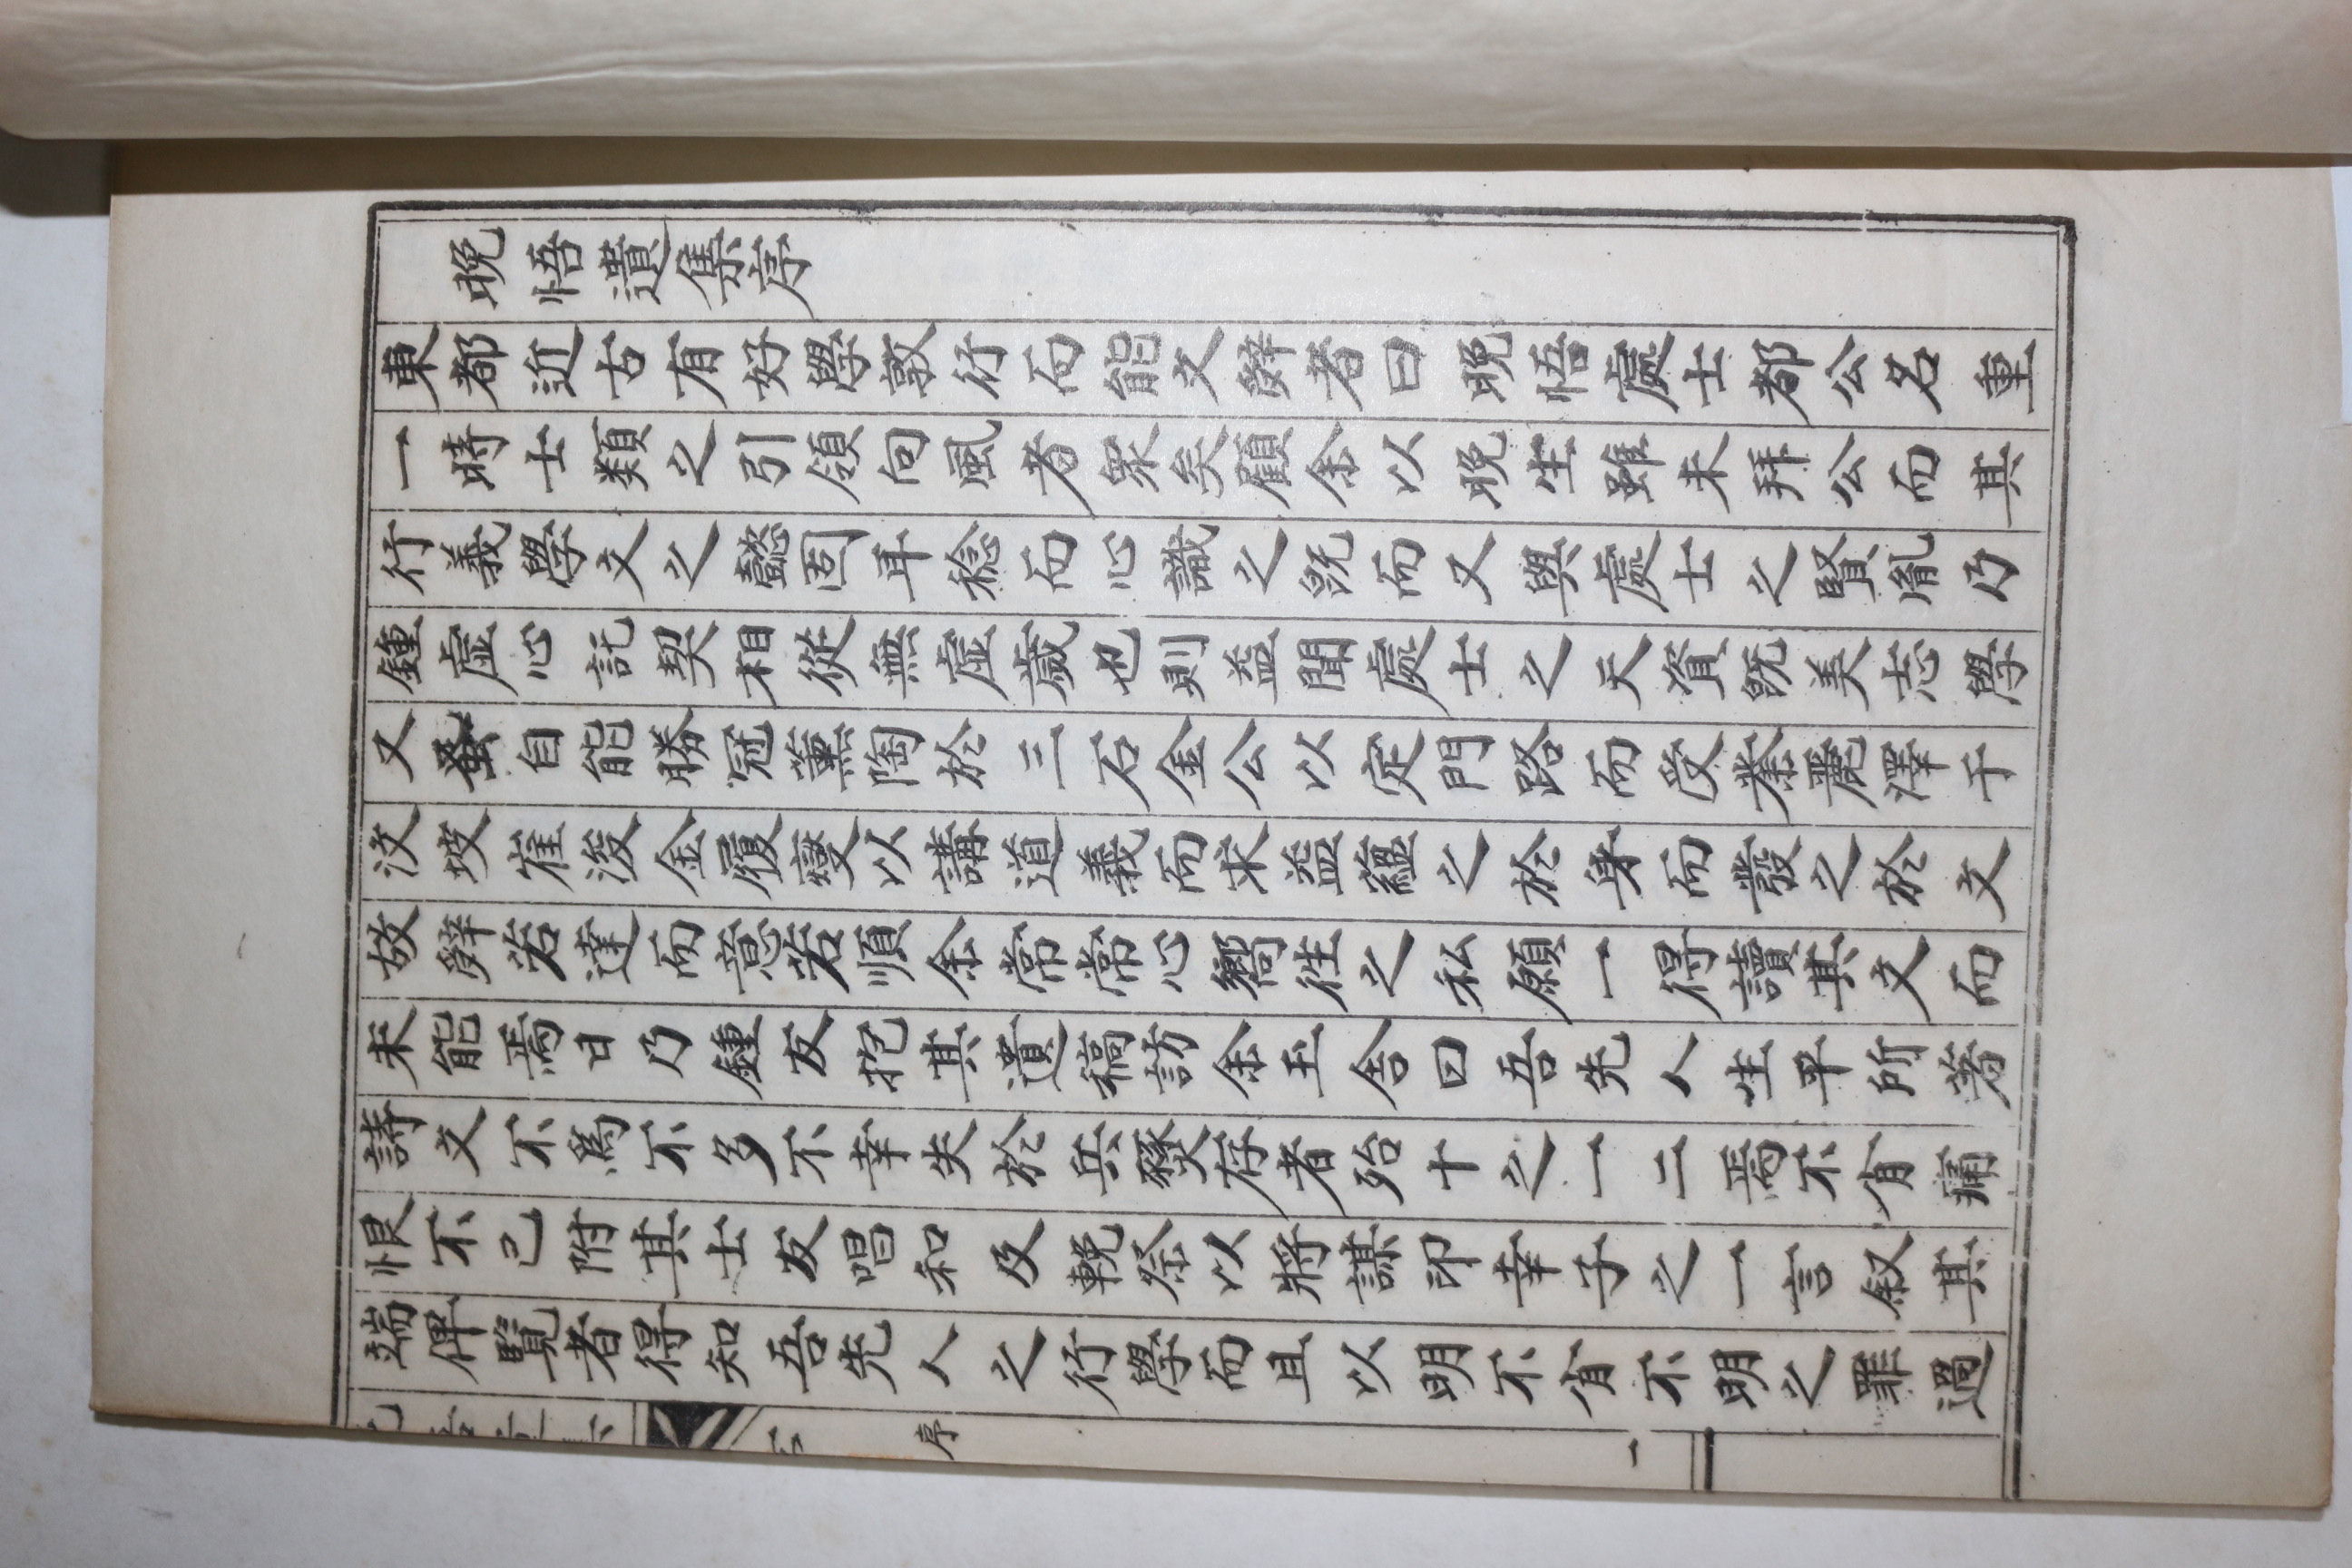 晚悟遺集序
東都近古有好學敦行而能文辭者曰晚悟處士都公名重
一時士類之引領向風者衆矣顧余以晚生雖未拜公而其
行義學文之懿固耳稔而心識之旣而又與處士之賢胤乃
鍾虛心託契相從無虛歲也則益聞處士之天資旣美志學
又蚤自能勝冠薰陶於三石金公以定門路而受業麗澤于
汶坡崔浚金履燮以講道義而求益蘊之於身而發之於文
故辭若達而意若順余常常心嚮徃之私願一得讀其文而
未能焉日乃鍾友抱其遺稿訪余玉舍曰吾先人生平所著
詩文不爲不多不幸失於兵燹存者殆十之一二焉不肖痛
恨不已附其士友唱和及輓祭以將謀印幸子之一言叙其
端俾覽者得知吾先人之行學而且以明不肖不明之罪過
序
一